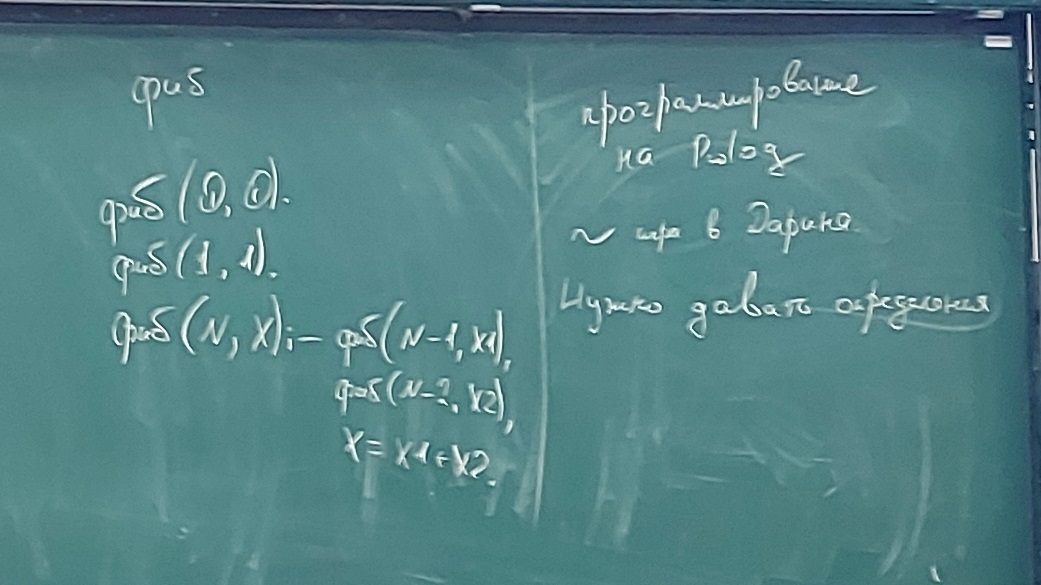 фиб
фиб(0, 0).
фиб(1, 1).
фиб(N, X):- фиб(N-1, X1),
фиб(N-2, X2),
X = X1+X2.
программирование
на Prolog
~ игра в Дарина.
Нужно давать определения